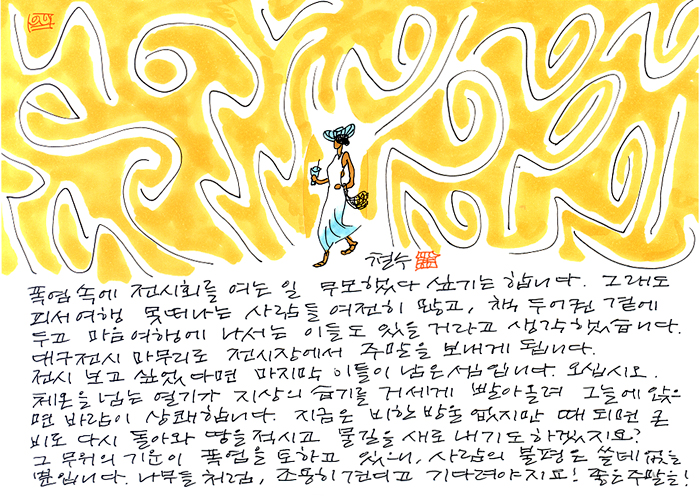 철수
폭염 속에 전시회를 여는 일 무모했다 싶기는 합니다. 그래도
피서여행 못떠나는 사람들 여전히 많고, 책 두어권 곁에
두고 마음여행에 나서는 이들도 있을 거라고 생각했습니다.
대구전시 마무리로 전시장에서 주말을 보내게 됩니다.
전시 보고 싶었다면 마지막 이틀이 남은셈입니다. 오십시오.
체온을 넘는 열기가 지상의 습기를 거세게 빨아올려 그늘에 앉으
면 바람이 상쾌합니다. 지금은 비한방울 없지만 때 되면 큰
비로 다시 돌아와 땅을 적시고 물길을 새로 내기도 하겠지요?
그 무위의 기운이 폭염을 토하고 있으니, 사람의 불평은 쓸데없을
뿐입니다. 나무들처럼, 조용히 견디고 기다려야지요! 좋은주말을!